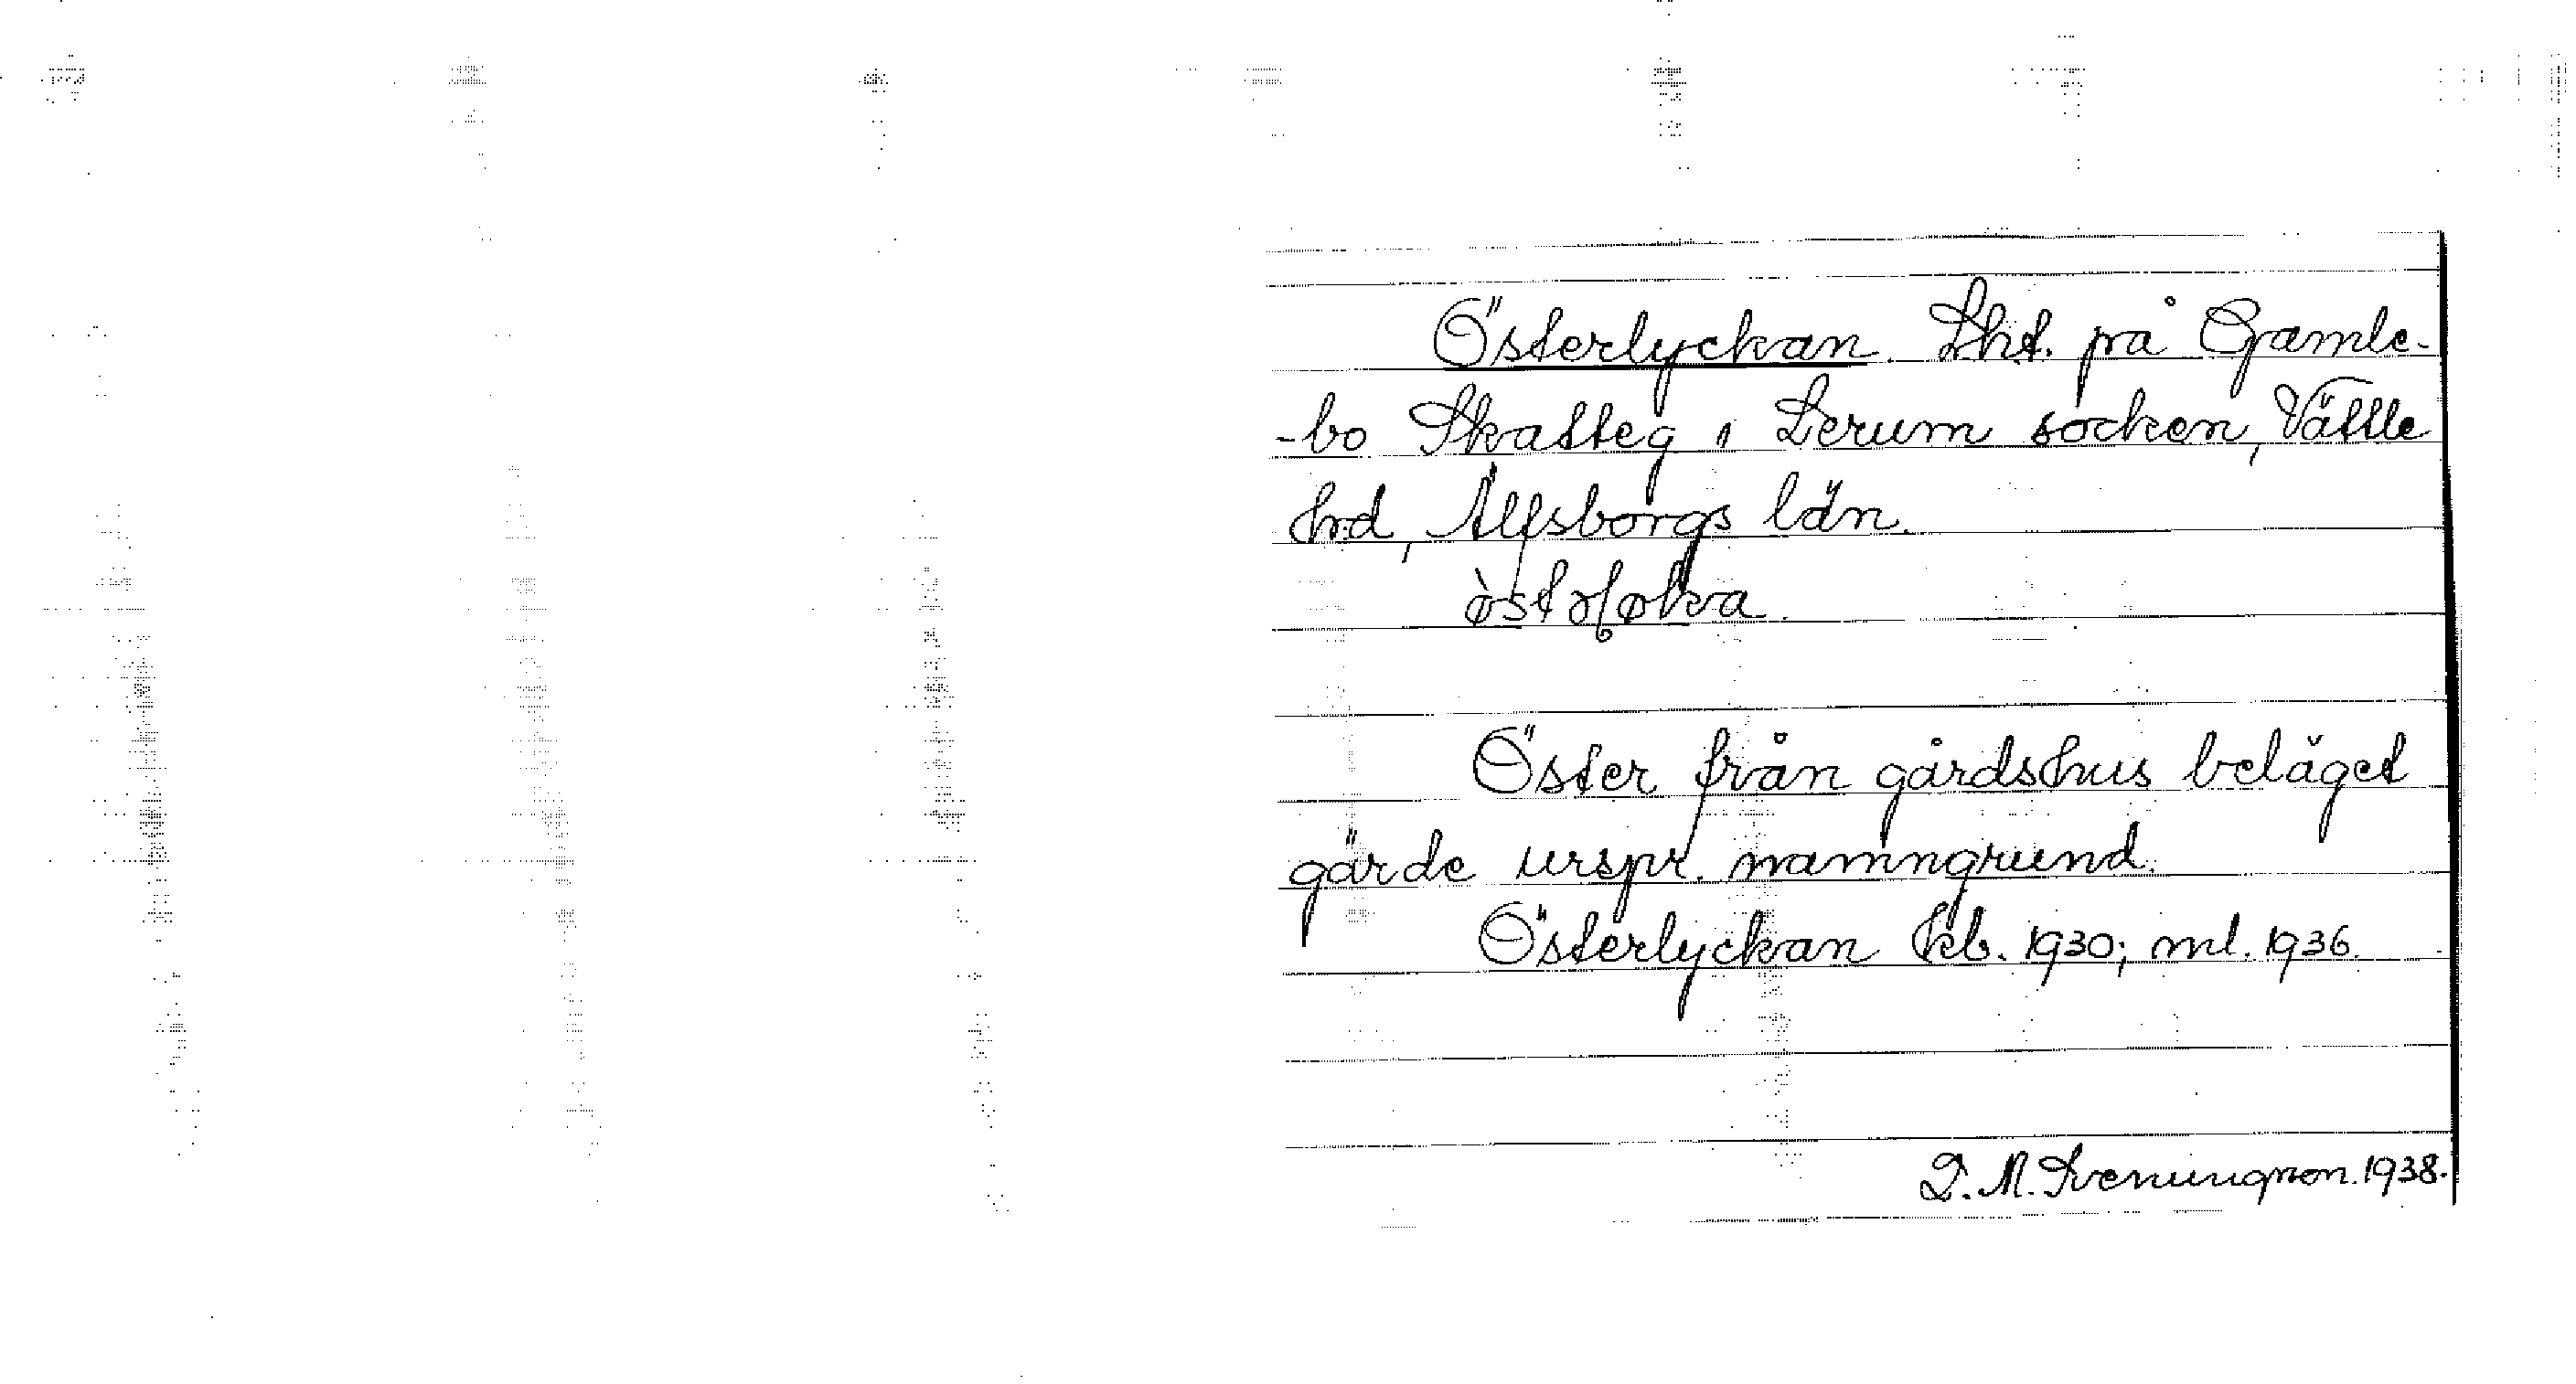 Österlyckan. Lht. på Gamle-
-bo Skatteg i Lerum socken, Vättle
hrd, Älfsborgs län.
Öster från gårdshus beläget
gärde urspr. namngrund.
Österlyckan kb. 1930; ml. 1936.
D. M. Svenungsson. 1938.